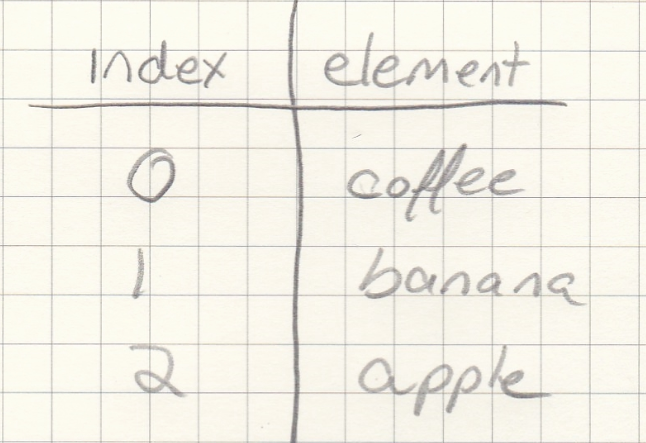 index element
0 coffee
1 banana
2 apple